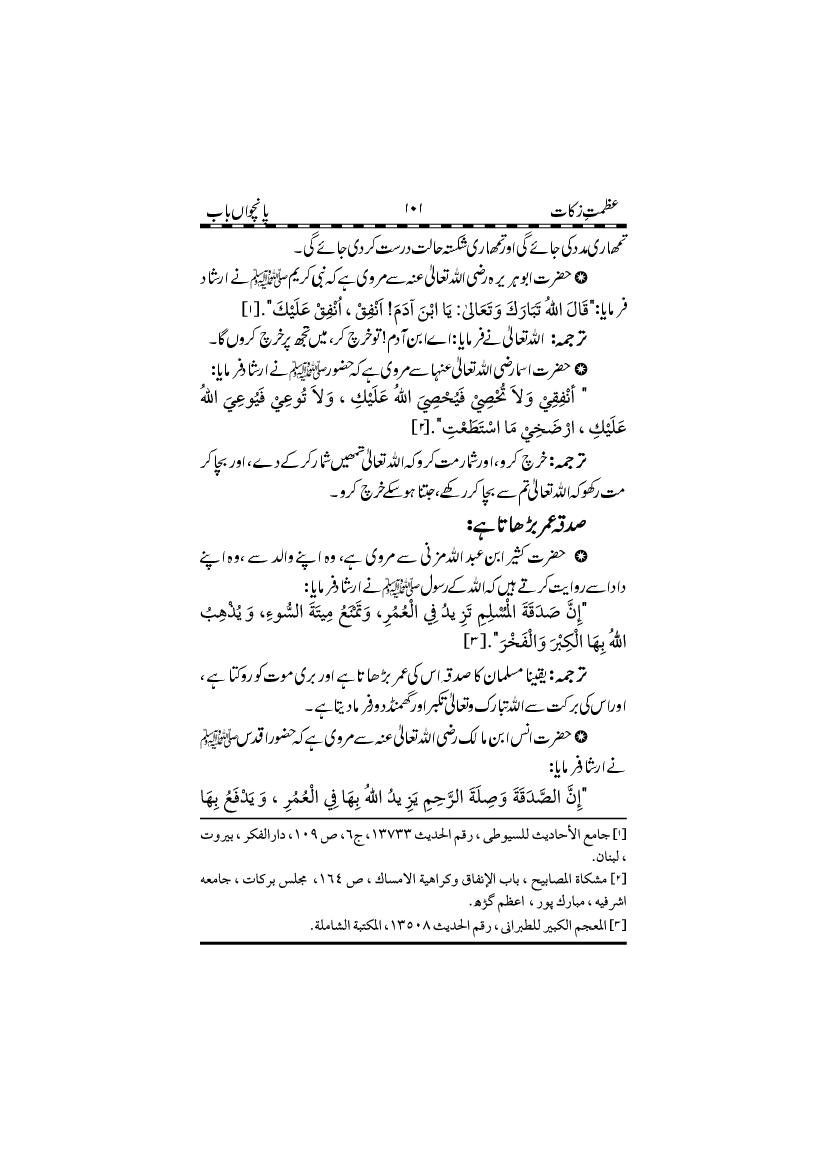 عظمتِ زکات ۱۰۱ پانچواں باب
تمھاری مدد کی جائے گی اور تمھاری شکستہ حالت درست کر دی جائے گی۔
✪ حضرت ابو ہریرہ رضی اللہ تعالیٰ عنہ سے مروی ہے کہ نبی کریم ﷺ نے ارشاد
فرمایا: "قَالَ اللهُ تَبَارَكَ وَتَعَالىٰ: يَا ابْنَ آدَمَ! اَنْفِقْ ، اُنْفِقْ عَلَيْكَ".[۱]
ترجمہ: اللہ تعالیٰ نے فرمایا: اے ابن آدم! تو خرچ کر، میں تجھ پر خرچ کروں گا۔
✪ حضرت اسما رضی اللہ تعالیٰ عنہا سے مروی ہے کہ حضور ﷺ نے ارشاد فرمایا:
" أَنْفِقِيْ وَلاَ تُحْصِيْ فَيُحْصِيَ اللهُ عَلَيْكِ ، وَلاَ تُوعِيْ فَيُوعِيَ اللهُ
عَلَيْكِ ، ارْضَخِيْ مَا اسْتَطَعْتِ".[۲]
ترجمہ: خرچ کرو، اور شمار مت کرو کہ اللہ تعالیٰ تمھیں شمار کر کے دے، اور بچا کر
مت رکھو کہ اللہ تعالیٰ تم سے بچا کر رکھے، جتنا ہو سکے خرچ کرو۔
صدقہ عمر بڑھاتا ہے:
✪ حضرت کثیر ابن عبد اللہ مزنی سے مروی ہے، وہ اپنے والد سے ، وہ اپنے
دادا سے روایت کرتے ہیں کہ اللہ کے رسول ﷺ نے ارشاد فرمایا:
"إِنَّ صَدَقَةَ الْمُسْلِمِ تَزِيدُ فِي الْعُمُرِ، وَتَمْنَعُ مِيتَةَ السُّوءِ، وَيُذْهِبُ
اللهُ بِهَا الْكِبْرَ وَالْفَخْرَ".[۳]
ترجمہ: یقینا مسلمان کا صدقہ اس کی عمر بڑھاتا ہے اور بری موت کو روکتا ہے ،
اور اس کی برکت سے اللہ تبارک و تعالیٰ تکبر اور گھمنڈ دور فرما دیتا ہے۔
✪ حضرت انس ابن مالک رضی اللہ تعالیٰ عنہ سے مروی ہے کہ حضور اقدس ﷺ
نے ارشاد فرمایا:
"إِنَّ الصَّدَقَةَ وَصِلَةَ الرَّحِمِ يَزِيدُ اللهُ بِهَا فِي الْعُمُرِ ، وَيَدْفَعُ بِهَا
[۱] جامع الأحاديث للسيوطی ، رقم الحديث ۱۳۷۳۳، ج٦، ص ۱۰۹، دارالفکر ، بیروت
، لبنان.
[۲] مشکاة المصابیح ، باب الإنفاق وکراهیة الامساک ، ص ١٦٤، مجلس برکات ، جامعه
اشرفیه ، مبارك پور ، اعظم گڑھ.
[۳] المعجم الکبیر للطبرانی ، رقم الحدیث ۱۳٥۰۸، المکتبة الشاملة.